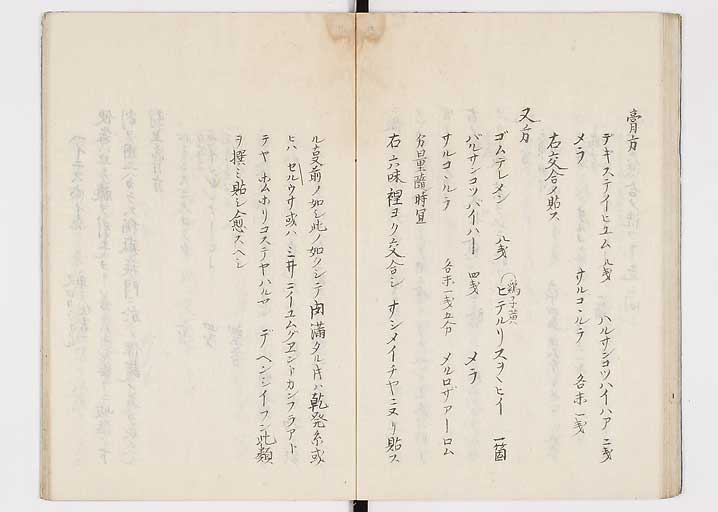 膏方
デキステイヒユムル戔 ハルサンコツハイハア 二戔
メラ サルコヽルラ 各末一戔
右交合ノ貼ス
又方
ゴムテレメン 八戔 鶏子黄 ヒテルリスヲヽヒイ 一箇
バルサンコツバイハー 四戔 メラ
サルコヽルラ 各末一戔五分 メルロザアーロム
分量臨時宜
右六味裡ヨク交合シ オンメイチヤニヌリ貼ス
ル夏前ノ如シ此ノ如クシテ肉満タル片ハ乾発糸或
ヒハ セルウサ或ハ ミ井ニイユムグエントカンフラアト
テヤホムホリコステヤハルサ デヘンシイフン此類
ヲ撰ミ貼シ愈スヘシ